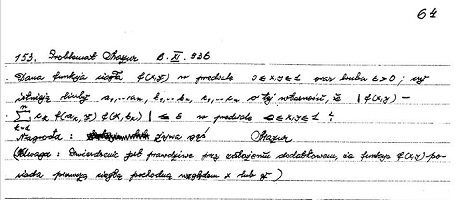 64
153. Problemat Mazur 6. XI. 936
Dana funkcja ciągła φ(x,y) w przedziale 0≤x,y≤1 oraz liczba ε>0; czy
istnieją liczby a₁,...aₙ, b₁,..bₙ, c₁,...cₙ o tej własności, że |φ(x,y) −
∑ₖ₌₁ⁿ cₖ φ(aₖ,y) φ(x,bₖ)| ≤ ε w przedziale 0≤x,y≤1 ?
Nagroda: żywa gęś Mazur
(Uwaga: Twierdzenie jest prawdziwe przy założeniu dodatkowem, że funkcja φ(x,y) po-
siada pierwszą ciągłą pochodną względem x lub y)